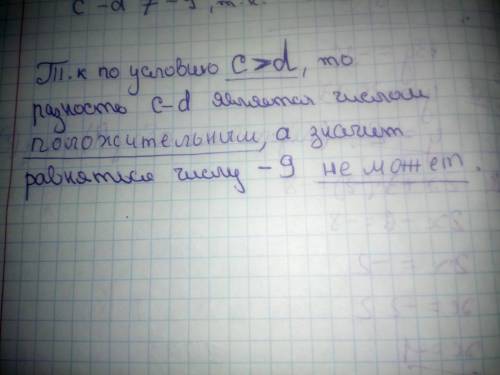 c-d ≠ -9, т.к.
Т.к по условию c>d, то
разность c-d является числом
положительным, а значит
равняться числу -9 не может.